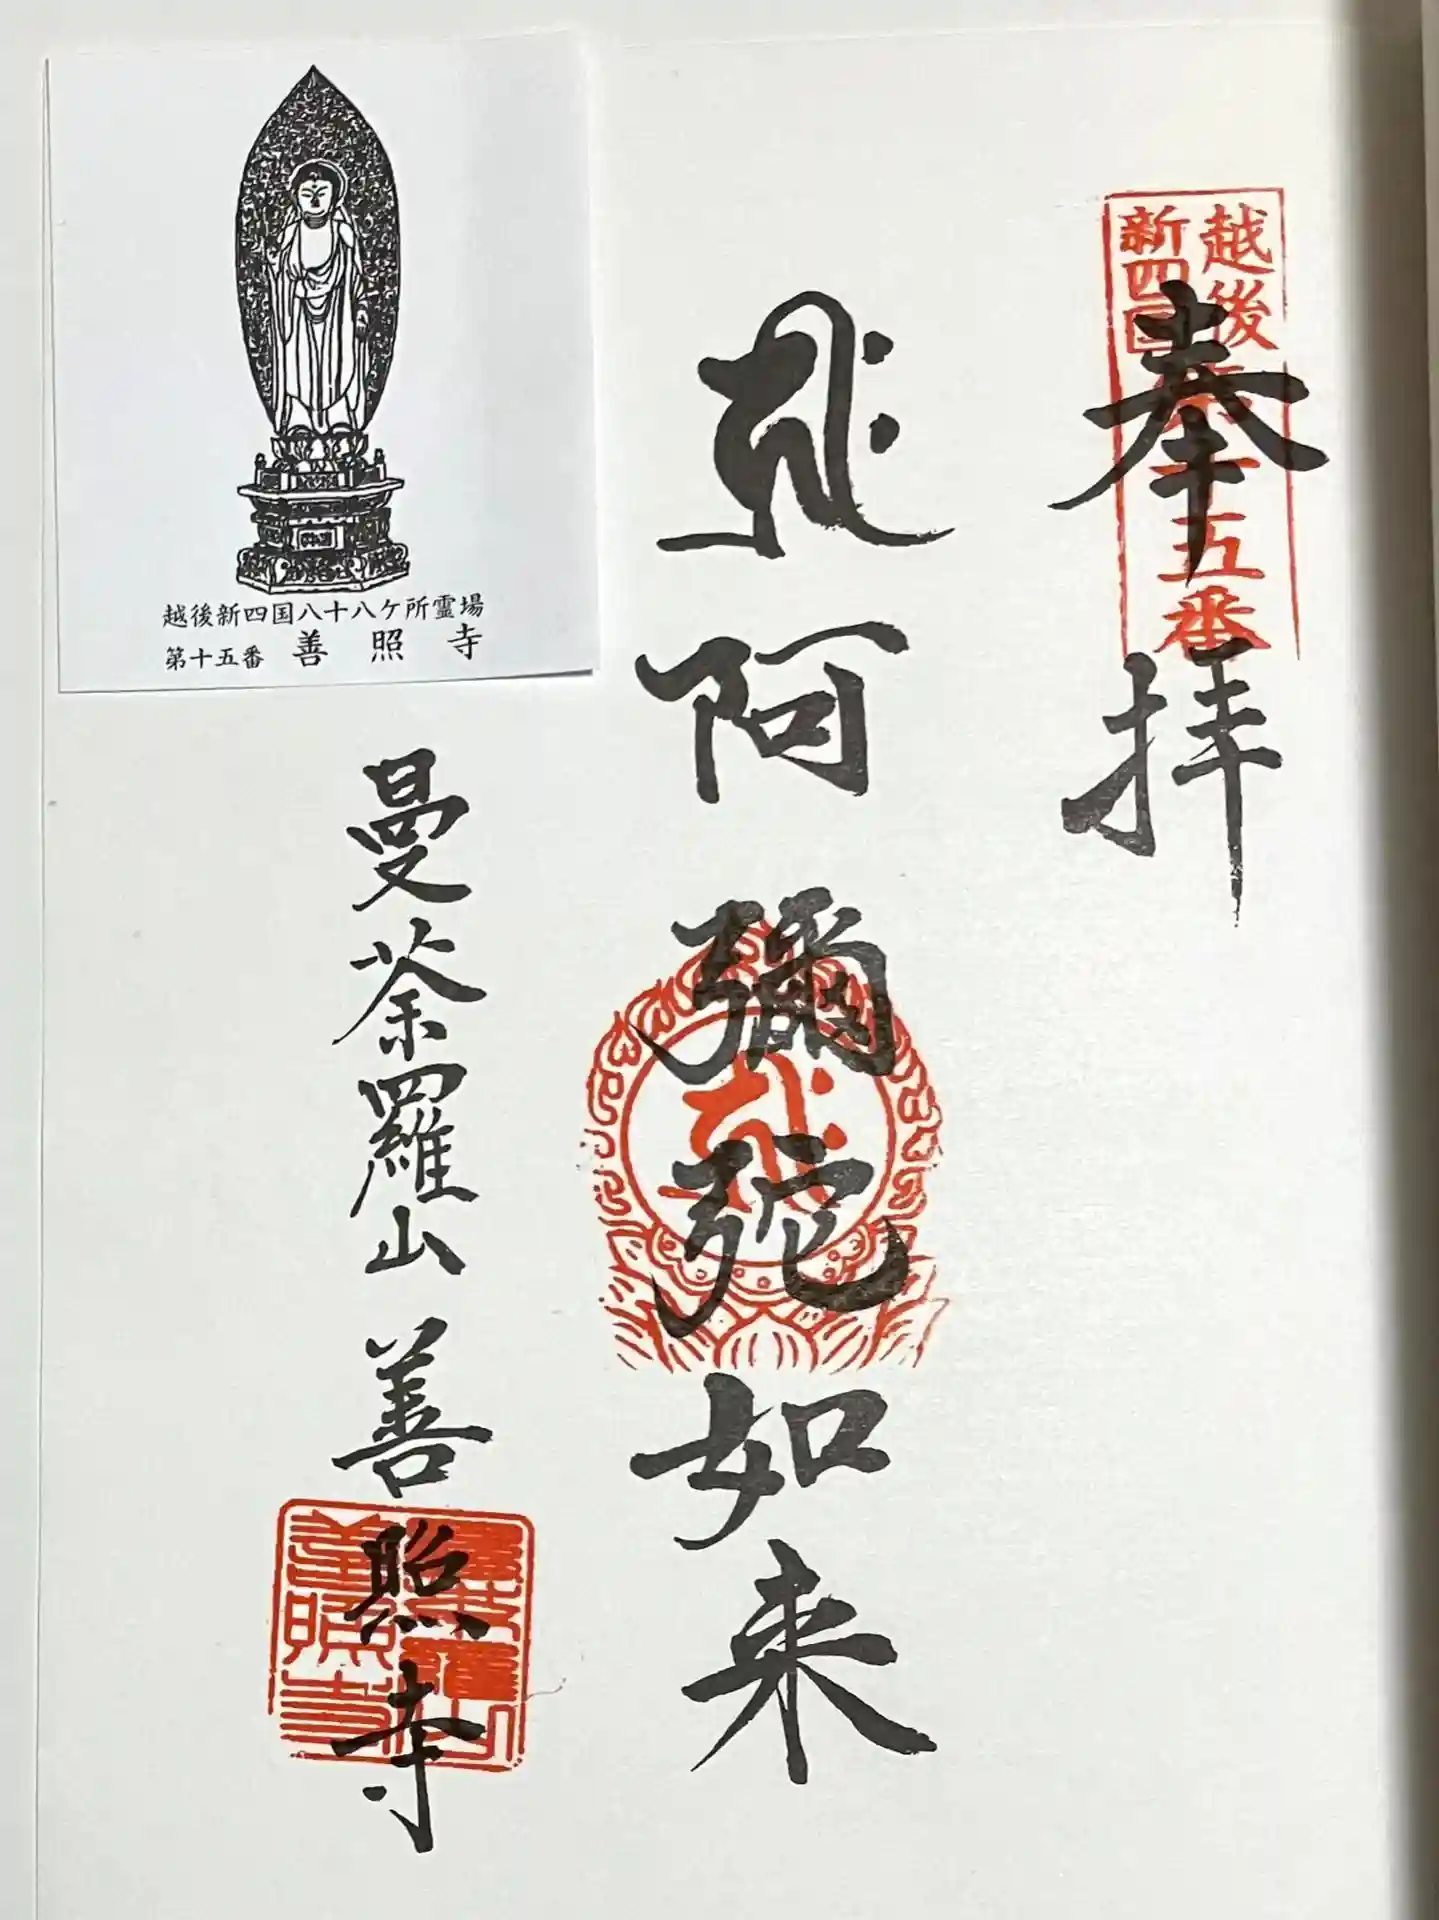 越後
新四国
第十五番
奉拝
阿彌陀如来
曼荼羅山善照寺
越後新四国八十八ケ所霊場
第十五番 善照寺